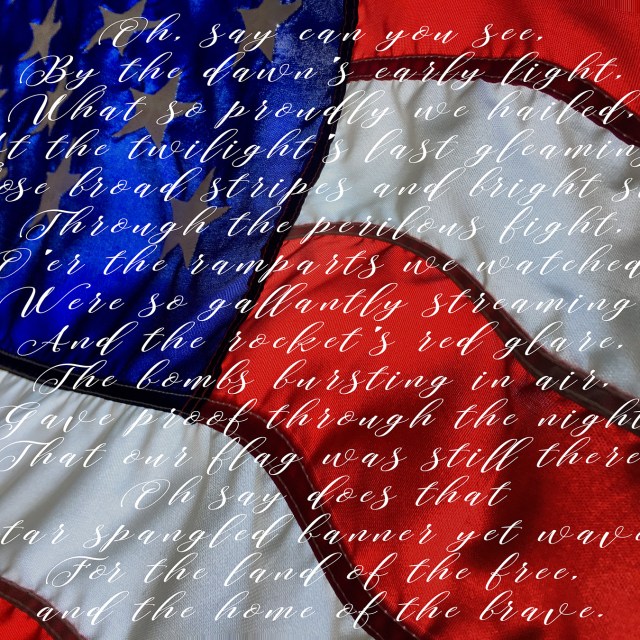 Oh, say can you see,
By the dawn's early light,
What so proudly we hailed,
At the twilight's last gleamin
ose broad stripes and bright s
Through the perilous fight,
O'er the ramparts we watched
Were so gallantly streaming
And the rocket's red glare,
The bombs bursting in air,
Gave proof through the night
That our flag was still there
Oh say does that
tar spangled banner yet wave
For the land of the free,
and the home of the brave.